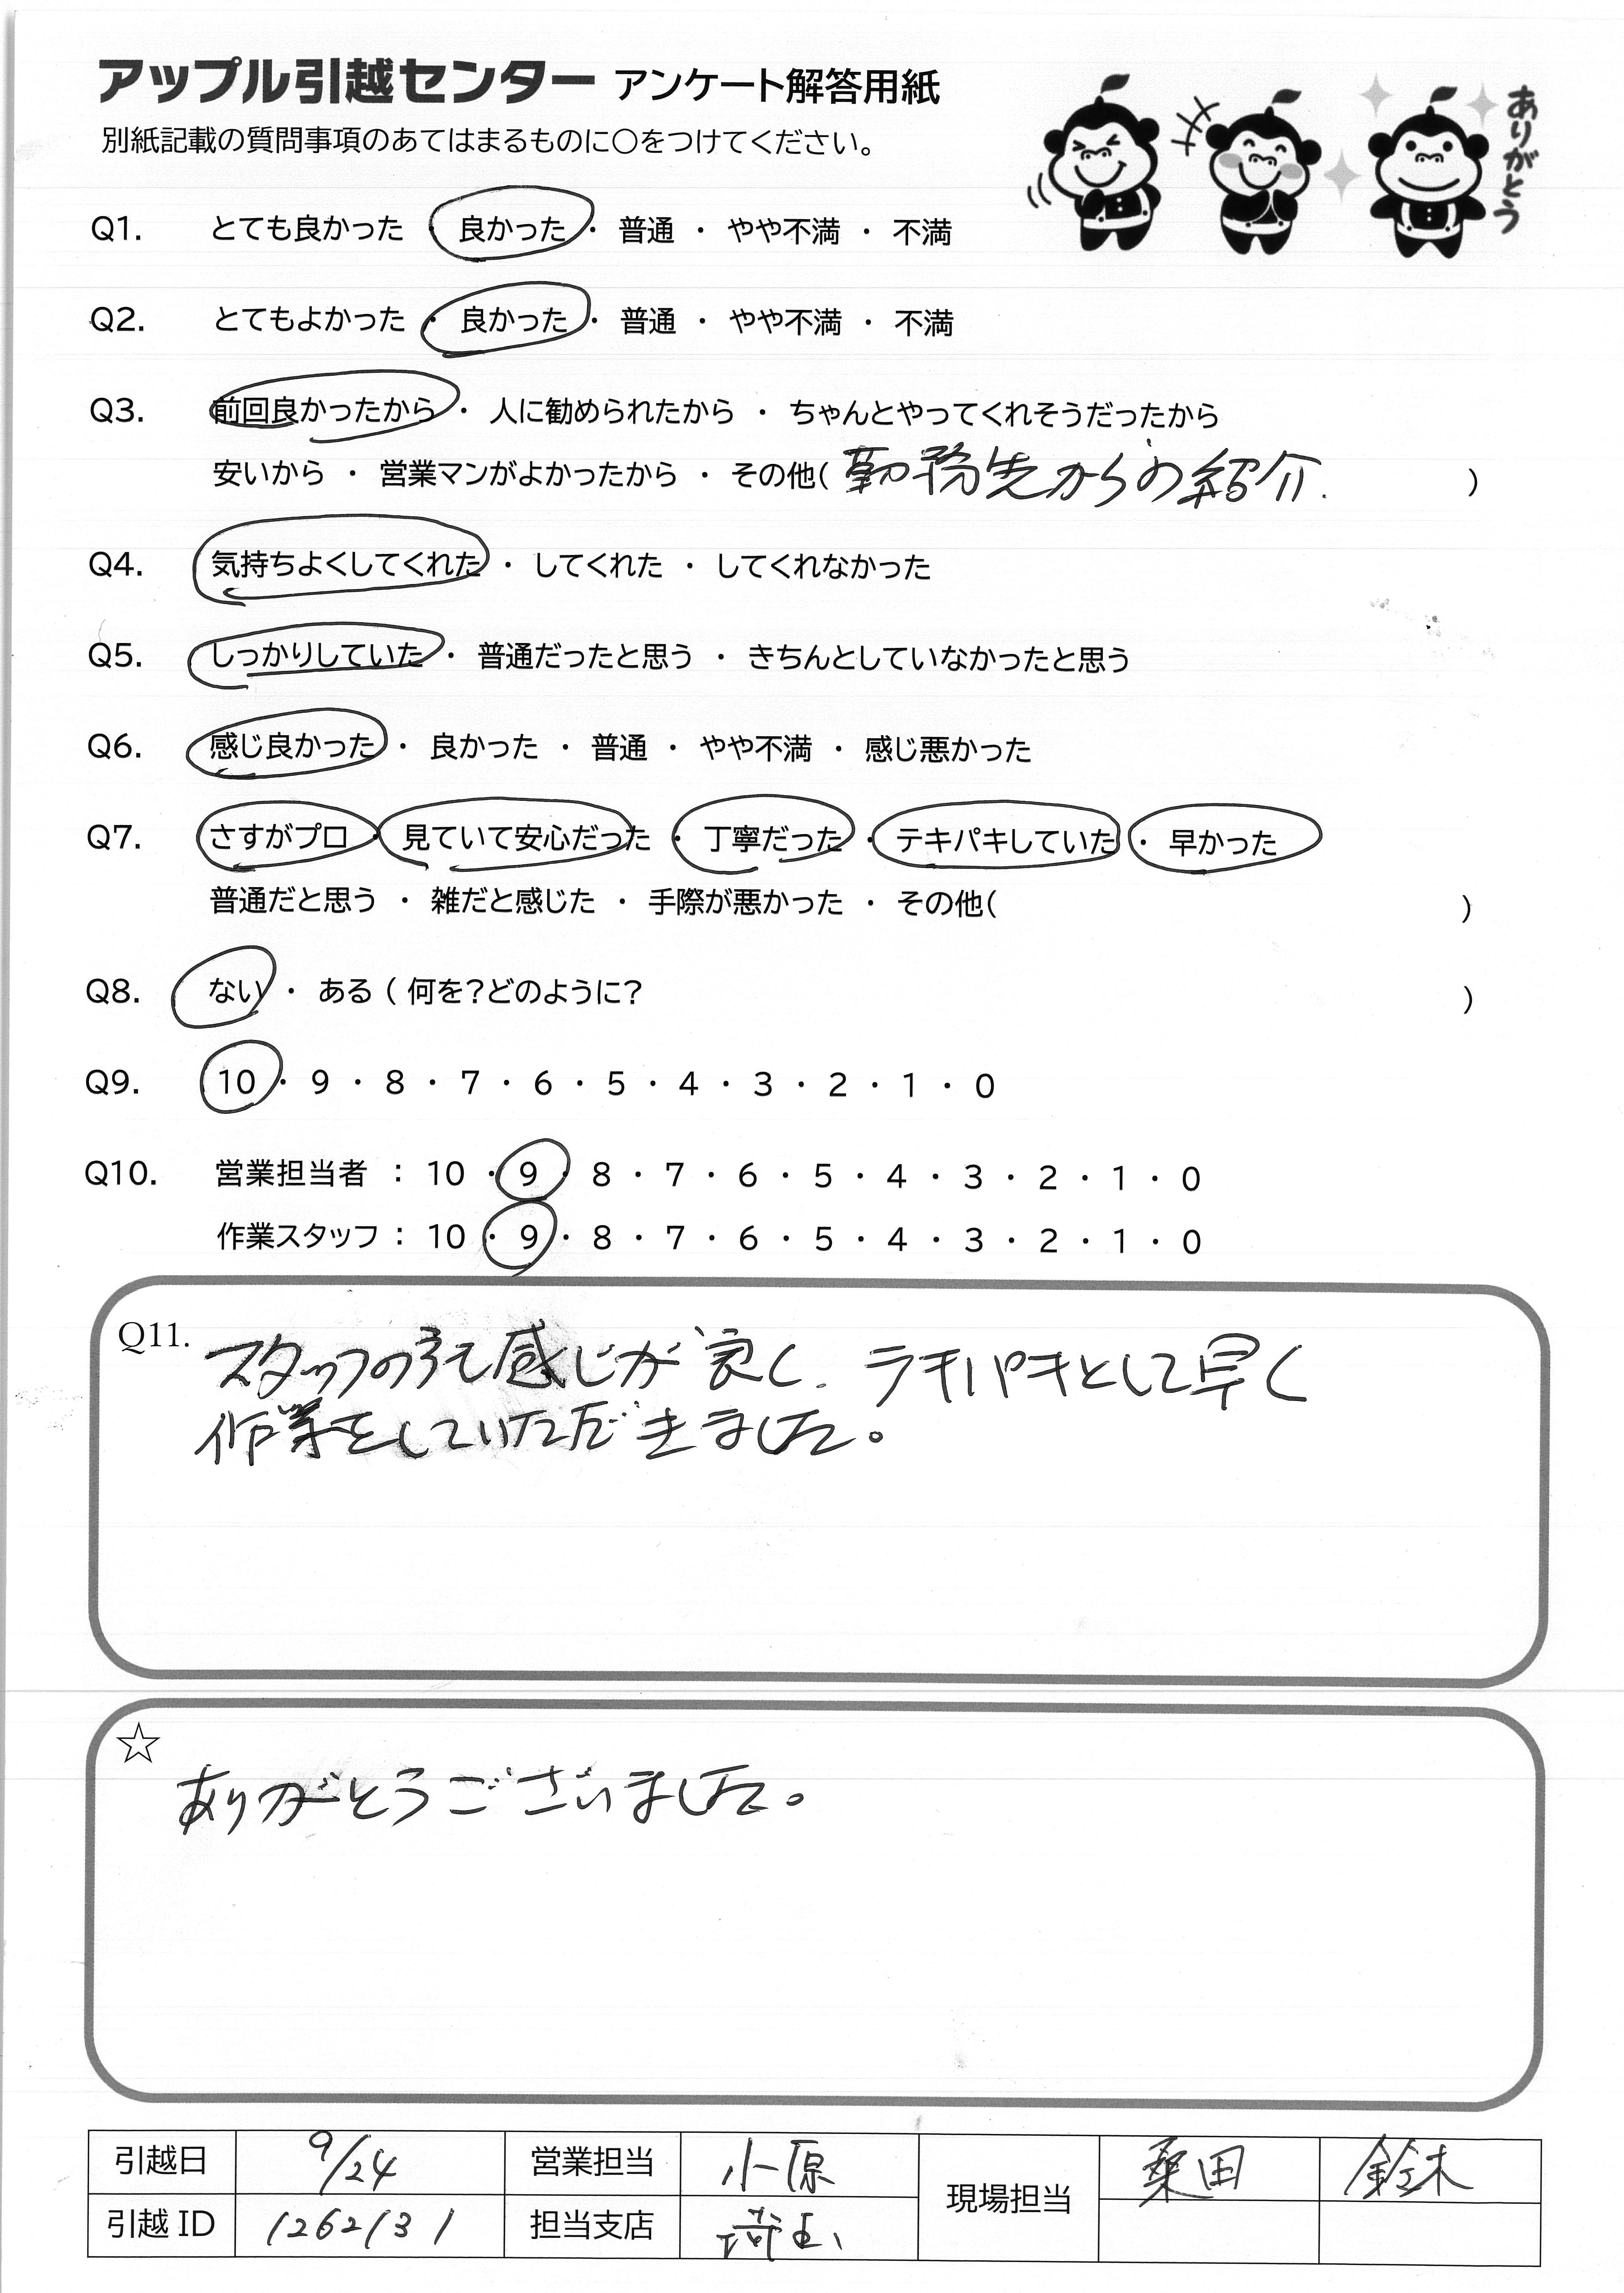 アップル引越センター アンケート解答用紙
別紙記載の質問事項のあてはまるものに○をつけてください。
ありがとう
Q1. とても良かった ・ 良かった ・ 普通 ・ やや不満 ・ 不満
Q2. とてもよかった ・ 良かった ・ 普通 ・ やや不満 ・ 不満
Q3. 前回良かったから ・ 人に勧められたから ・ ちゃんとやってくれそうだったから
安いから ・ 営業マンがよかったから ・ その他( 勤務先からの紹介. )
Q4. 気持ちよくしてくれた ・ してくれた ・ してくれなかった
Q5. しっかりしていた ・ 普通だったと思う ・ きちんとしていなかったと思う
Q6. 感じ良かった ・ 良かった ・ 普通 ・ やや不満 ・ 感じ悪かった
Q7. さすがプロ ・ 見ていて安心だった ・ 丁寧だった ・ テキパキしていた ・ 早かった
普通だと思う ・ 雑だと感じた ・ 手際が悪かった ・ その他( )
Q8. ない ・ ある ( 何を?どのように? )
Q9. 10 ・ 9 ・ 8 ・ 7 ・ 6 ・ 5 ・ 4 ・ 3 ・ 2 ・ 1 ・ 0
Q10. 営業担当者 : 10 ・ 9 ・ 8 ・ 7 ・ 6 ・ 5 ・ 4 ・ 3 ・ 2 ・ 1 ・ 0
作業スタッフ : 10 ・ 9 ・ 8 ・ 7 ・ 6 ・ 5 ・ 4 ・ 3 ・ 2 ・ 1 ・ 0
Q11. スタッフの方も感じが良く、テキパキとして早く
作業をしていただきました。
☆
ありがとうございました。
引越日 9/24 営業担当 小原 現場担当 桑田 鈴木
引越 ID 1262131 担当支店 埼玉